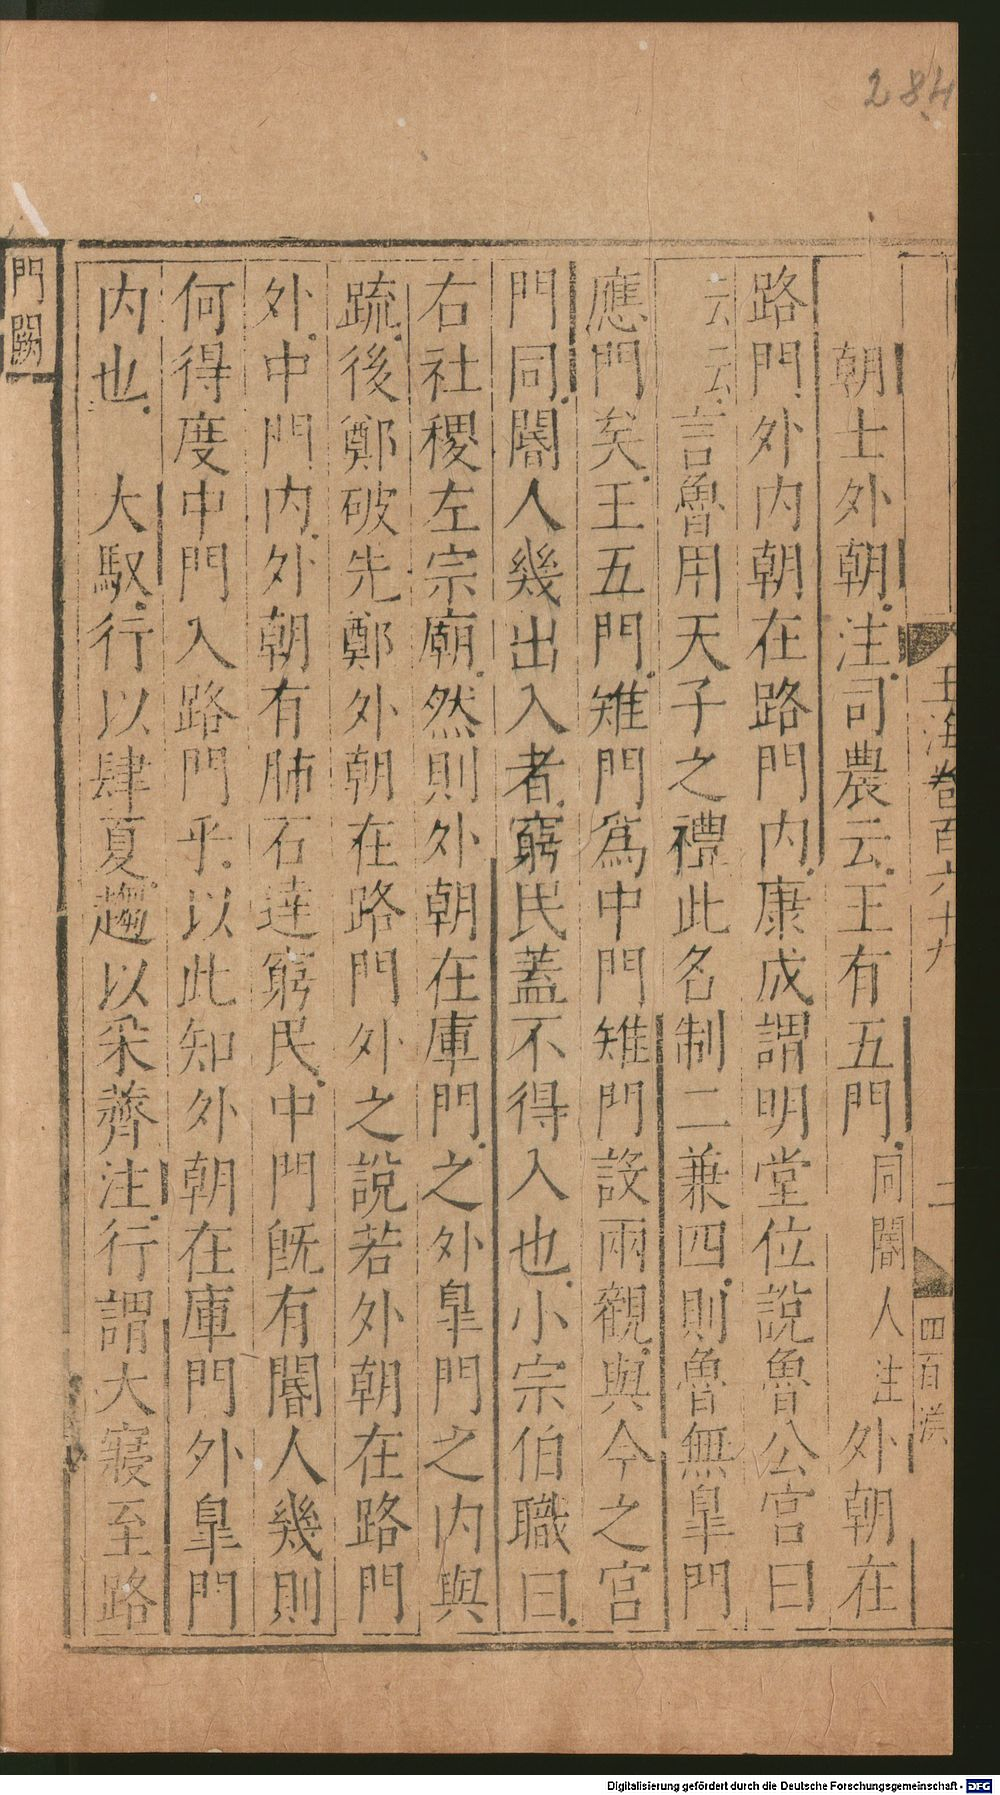 284
玉海卷百六十九 二 四百洪
朝士外朝注司農云王有五門同閽人注外朝在
路門外内朝在路門内康成謂明堂位說魯公宮曰
云云言魯用天子之禮此名制二兼四則魯無臯門
應門矣王五門雉門爲中門雉門設兩觀與今之宮
門同閽人幾出入者窮民蓋不得入也小宗伯職曰
右社稷左宗廟然則外朝在庫門之外臯門之内與
疏後鄭破先鄭外朝在路門外之說若外朝在路門
外中門内外朝有肺石達窮民中門旣有閽人幾則
何得度中門入路門乎以此知外朝在庫門外臯門
内也 大馭行以肆夏趨以采薺注行謂大寢至路
門闕
Digitalisierung gefördert durch die Deutsche Forschungsgemeinschaft - DFG